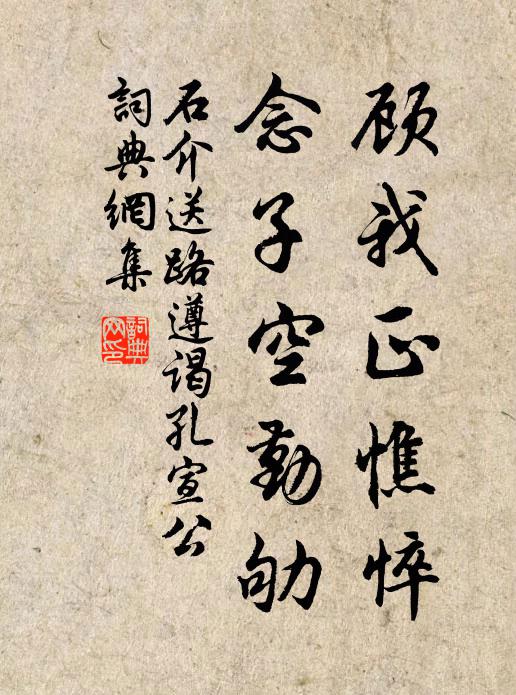 顾我正憔悴
念子空勤劬
石介送路遵谒孔宣公
詞典網集
詞典
网印